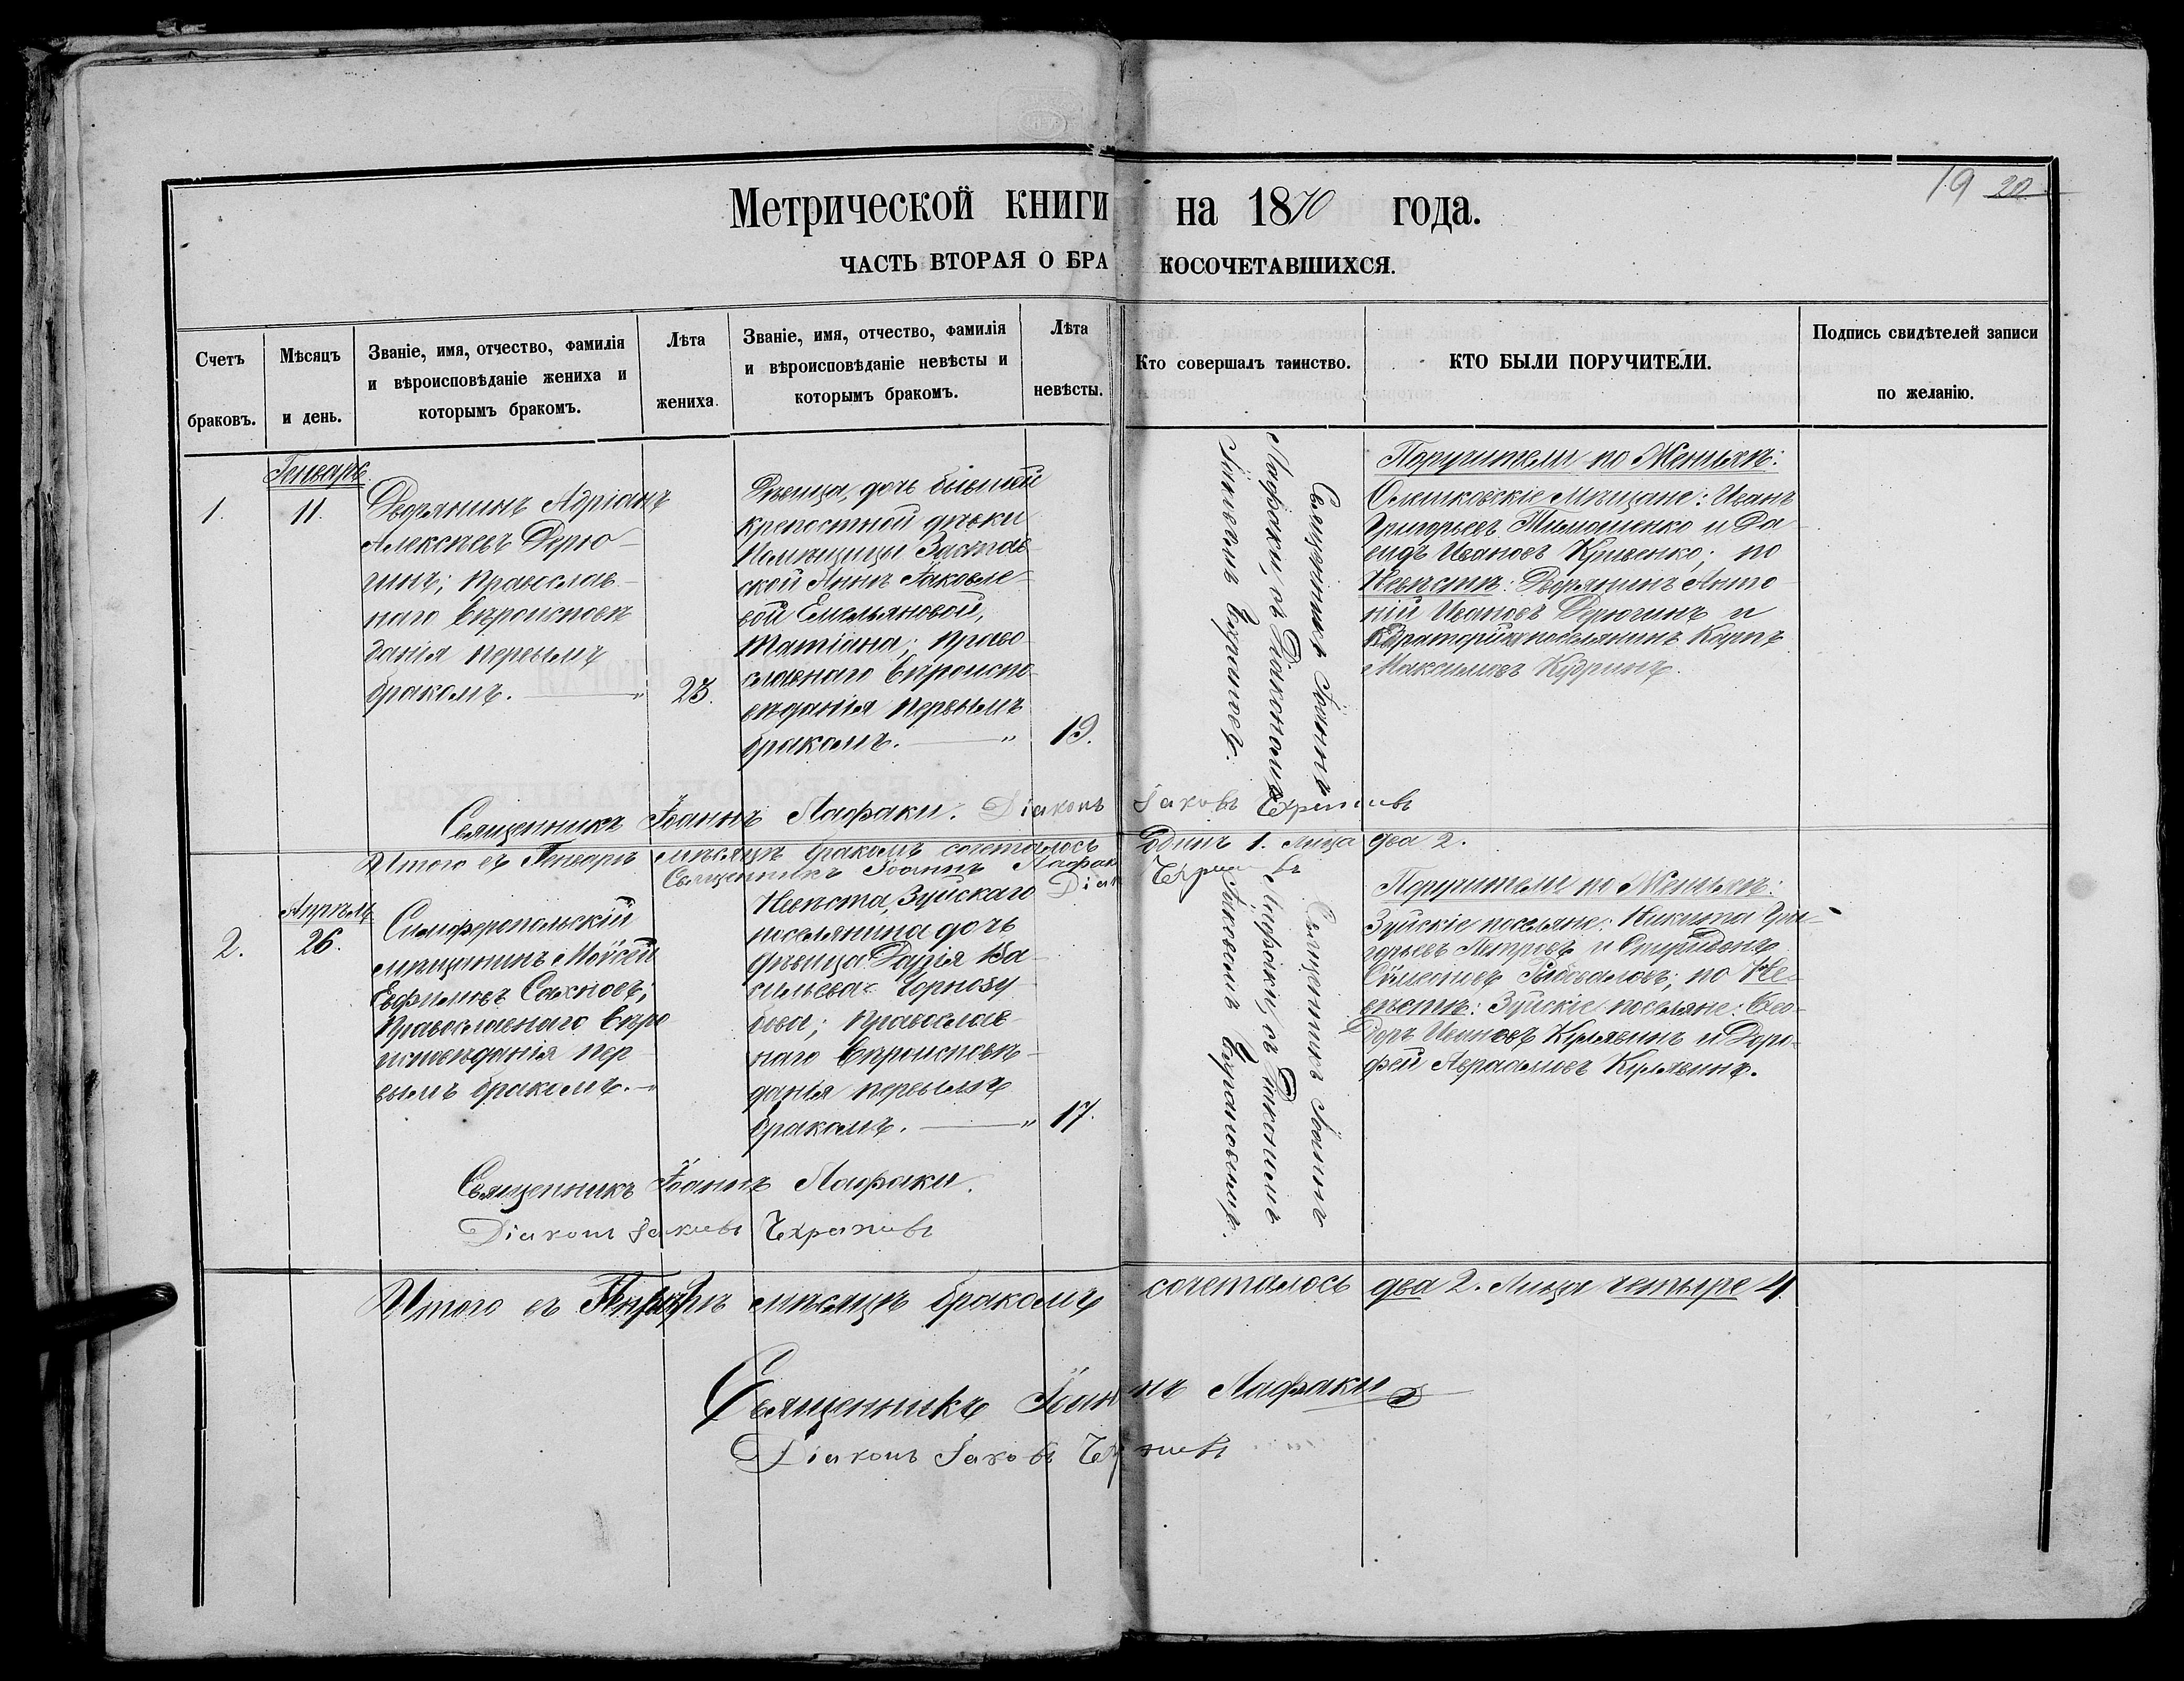 Метрической книги на 1870 года.
19 20
ЧАСТЬ ВТОРАЯ О БРАКОСОЧЕТАВШИХСЯ.
Счетъ браковъ.
Мѣсяцъ и день.
Званіе, имя, отчество, фамилія
и вѣроисповѣданіе жениха и
которымъ бракомъ.
Лѣта
жениха.
Званіе, имя, отчество, фамилія
и вѣроисповѣданіе невѣсты и
которымъ бракомъ.
Лѣта
невѣсты.
Кто совершалъ таинство.
КТО БЫЛИ ПОРУЧИТЕЛИ.
Подпись свидѣтелей записи
по желанію.
Генварь
1.
11.
Дворянинъ Адріанъ
Алексѣевъ Дерю-
гинъ; православ-
наго вѣроисповѣ
данія первымъ
бракомъ. — "
23.
Дѣвица, дочь бывшей
крѣпостной дѣвки
Помѣщицы Застав-
ской Анны Яковле-
вой Емельяновой,
Татіана; право-
славнаго вѣроиспо-
вѣданія первымъ
бракомъ. — "
19.
Священникъ Іоаннъ
Лафаки, съ Діакономъ
Іаковомъ
Поручители по Женихѣ:
Олешковскіе Мѣщане: Иванъ
Григорьевъ Тимошенко и Да-
видъ Ивановъ Кривенко; по
Невѣстѣ: Дворянинъ Анто-
ній Ивановъ Дерюгинъ и
поселянинъ Карпъ
Максимовъ Кудринъ.
Священникъ Іоаннъ Лафаки. Діаконъ Іаковъ
Итого въ Генварѣ мѣсяцѣ бракомъ сочеталось Одинъ 1. Лица два 2.
Священникъ Іоаннъ Лафаки
Апрѣль
2.
26.
Симферопольскій
мѣщанинъ Моисей
Евфимовъ Сахновъ;
Православнаго вѣро
исповѣданія пер-
вымъ бракомъ. — "
Невѣста, Зуйскаго
поселянина дочь
дѣвица Дарія Ва-
сильева Чорнозу-
бова; Православ-
наго вѣроисповѣ-
данія первымъ
бракомъ. — "
17.
Священникъ Іоаннъ
Лафаки, съ Діакономъ
Іаковомъ
Поручители по Женихѣ:
Зуйскіе поселяне: Никита Гри-
горьевъ Петровъ и Спиридонъ
по Не-
вѣстѣ: Зуйскіе поселяне: Ѳео-
доръ Ивановъ Курлявинъ и Доро-
фей Авраамовъ Курлявинъ.
Священникъ Іоаннъ Лафаки.
Діаконъ Іаковъ
Итого въ мѣсяцѣ бракомъ сочеталось два 2. Лица четыре 4.
Священникъ Іоаннъ Лафаки
Діаконъ Іаковъ